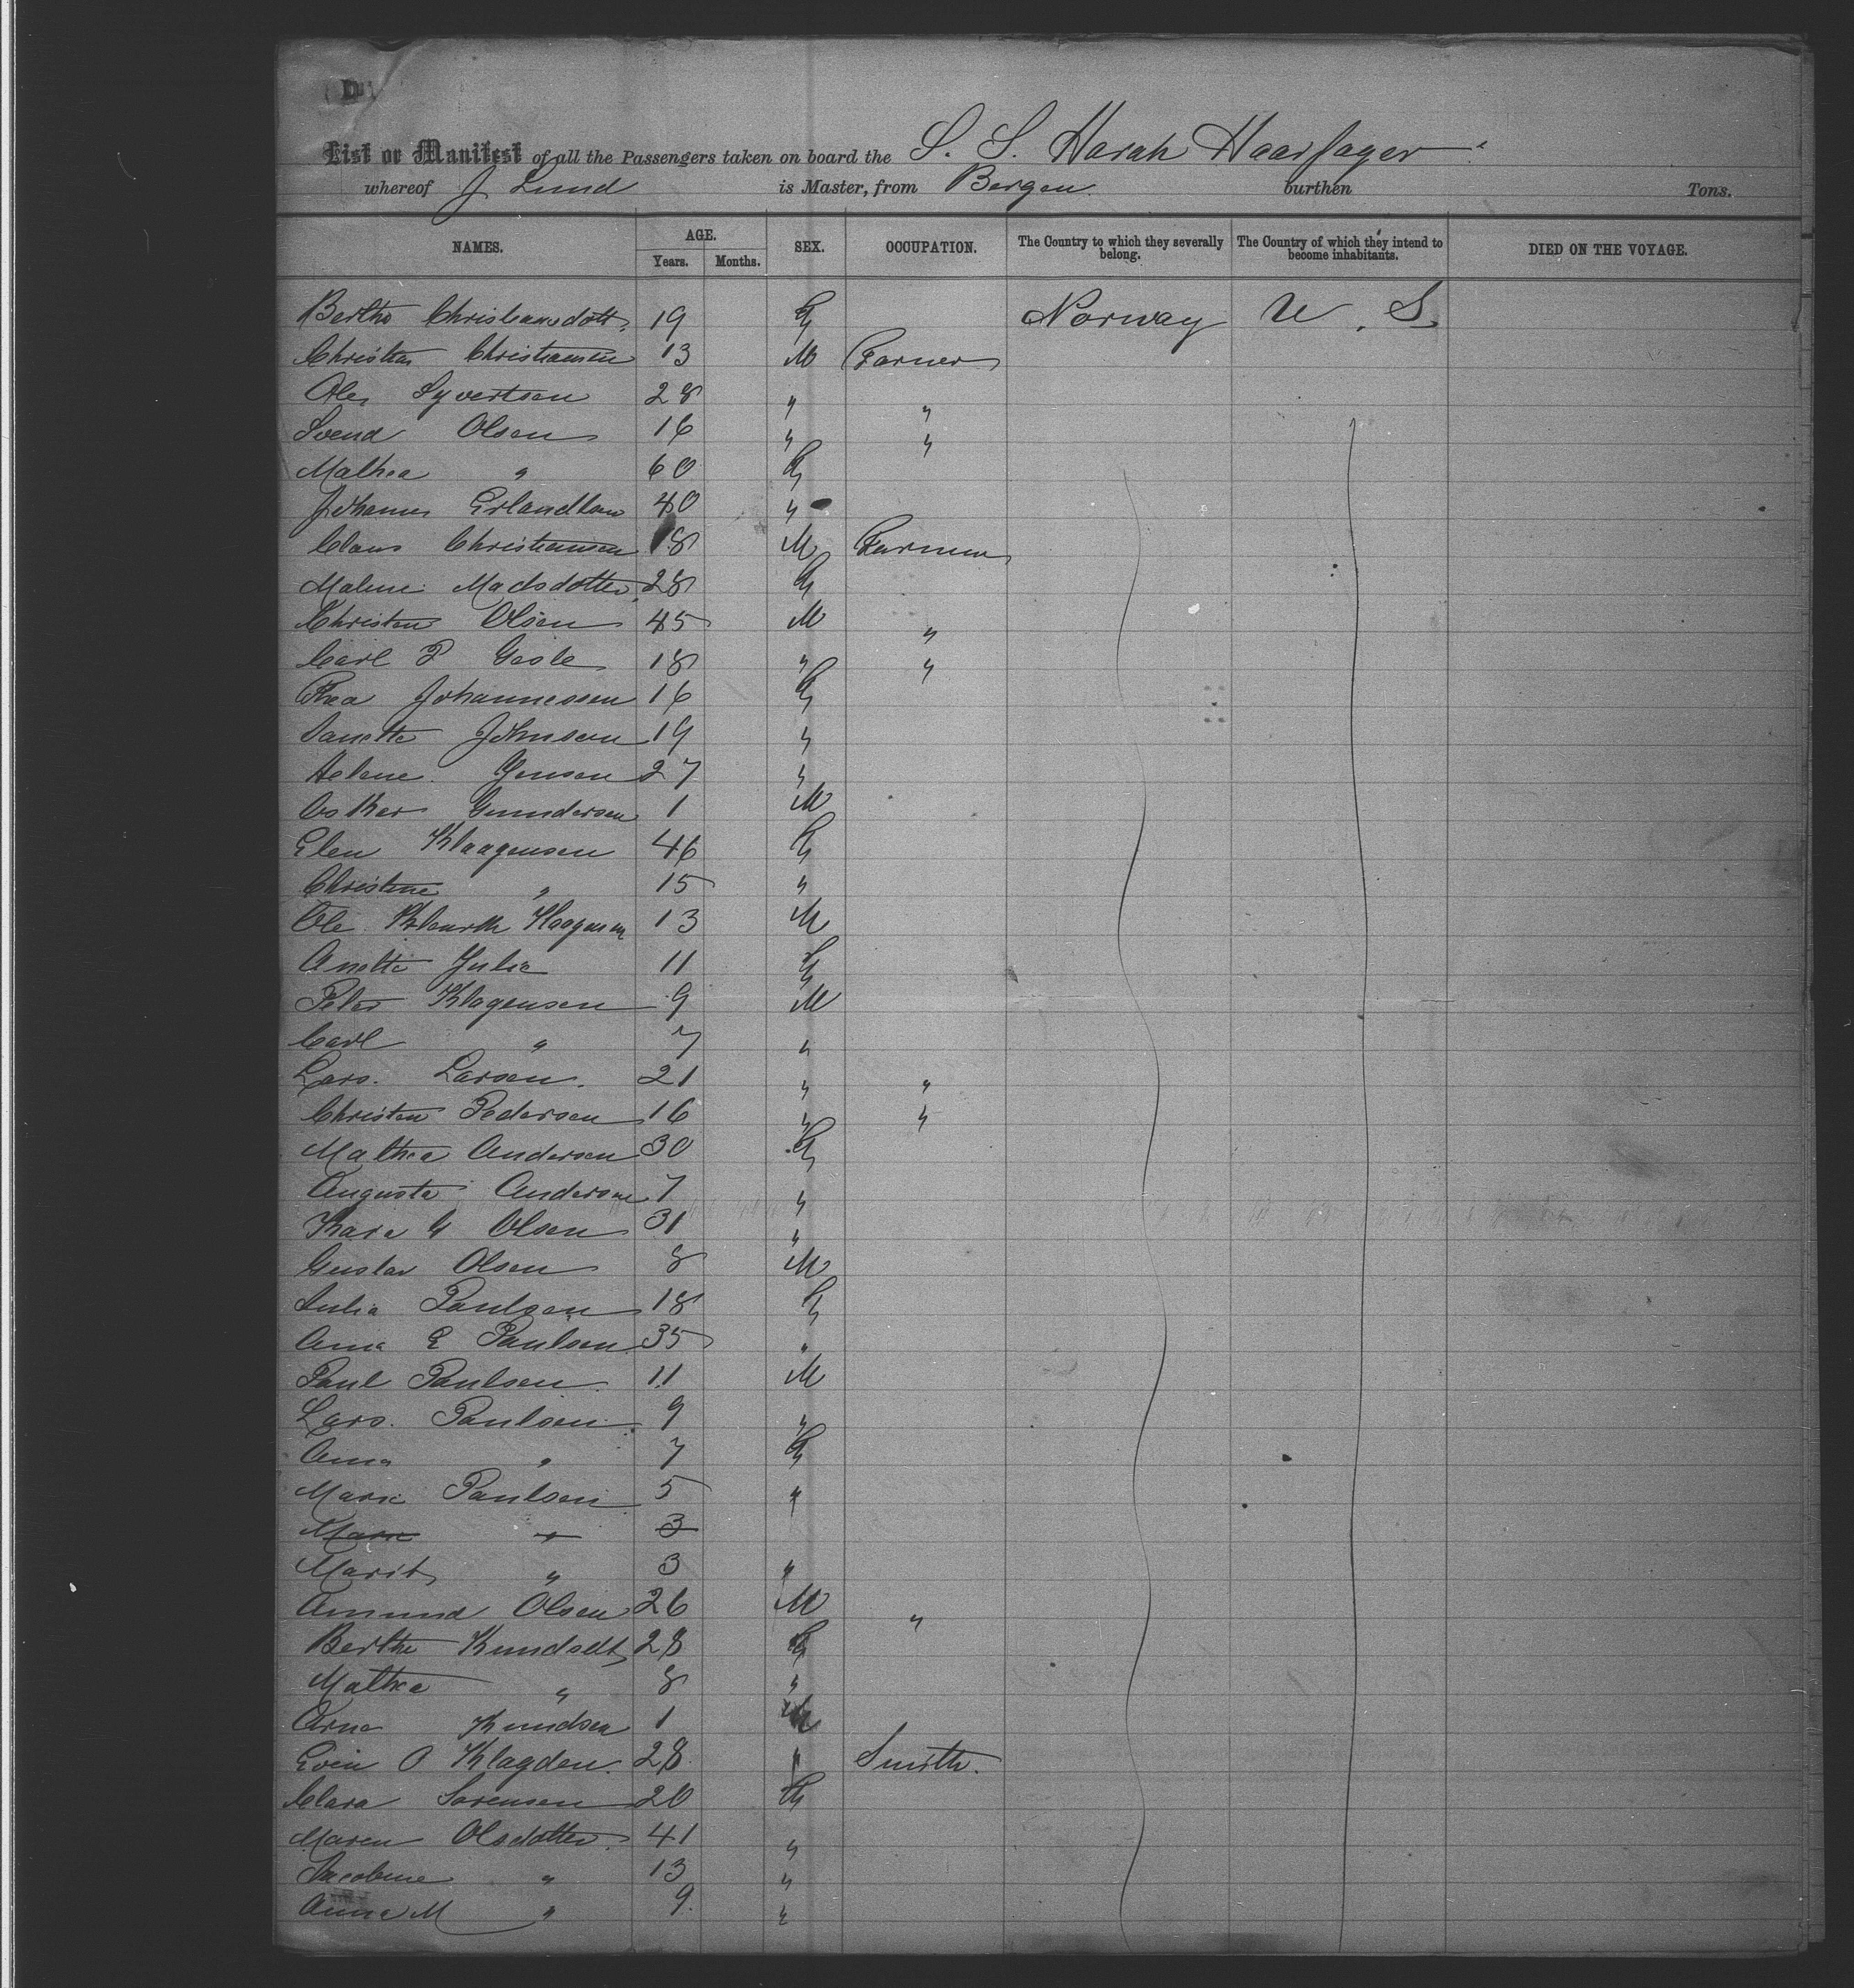 List or Manifest of all the Passengers taken on board the S. S. Harah Haarfager
whereof J Lund is Master, from Bergen burthen Tons.
NAMES. AGE. SEX. OCCUPATION. The Country to which they severally belong. The Country of which they intend to become inhabitants. DIED ON THE VOYAGE.
Years. Months.
Berthe Christiansdott. 19 Norway U. S.
Christian Christiansen 13 M Farmer
Ole Syvertsen 28 " "
Svend Olsen 16 " "
Mathea " 60
Johannes Erlandsen 40 "
Claus Christiansen 18 M Farmer
Malene Madsdotter 28
Christen Olsen 45 M "
Carl P 18 " "
Thea Johannessen 16
Johnsen 19 "
Helene Jensen 27 "
Gundersen 1 M
Elen Klaagensen 46
Christine " 15 "
Ole Klaagensen 13 M
Anette Julie 11
Peter Klagensen 9 M
Carl " 7 "
Lars. Larsen. 21 " "
Christen Pedersen 16 " "
Mathea Andersen 30
Augusta Andersen 7 "
Kare Olsen 31 "
Gustav Olsen 8 M
Julia Paulsen 18
Ana E Paulsen 35 "
Paul Paulsen 11 M
Lars. Paulsen 9 "
Ana " 7
Marie Paulsen 5 "
Marie " 3
Marit " 3 "
Amund Olsen 26 M "
Berthe Knudsdt 28
Mathea " 8 "
Arne Knudsen 1 M
Even O Klagden. 28 " Smith.
Clara Sorensen 20
Maren Olsdotter 41 "
Jacobine " 13 "
Anne M " 9. "